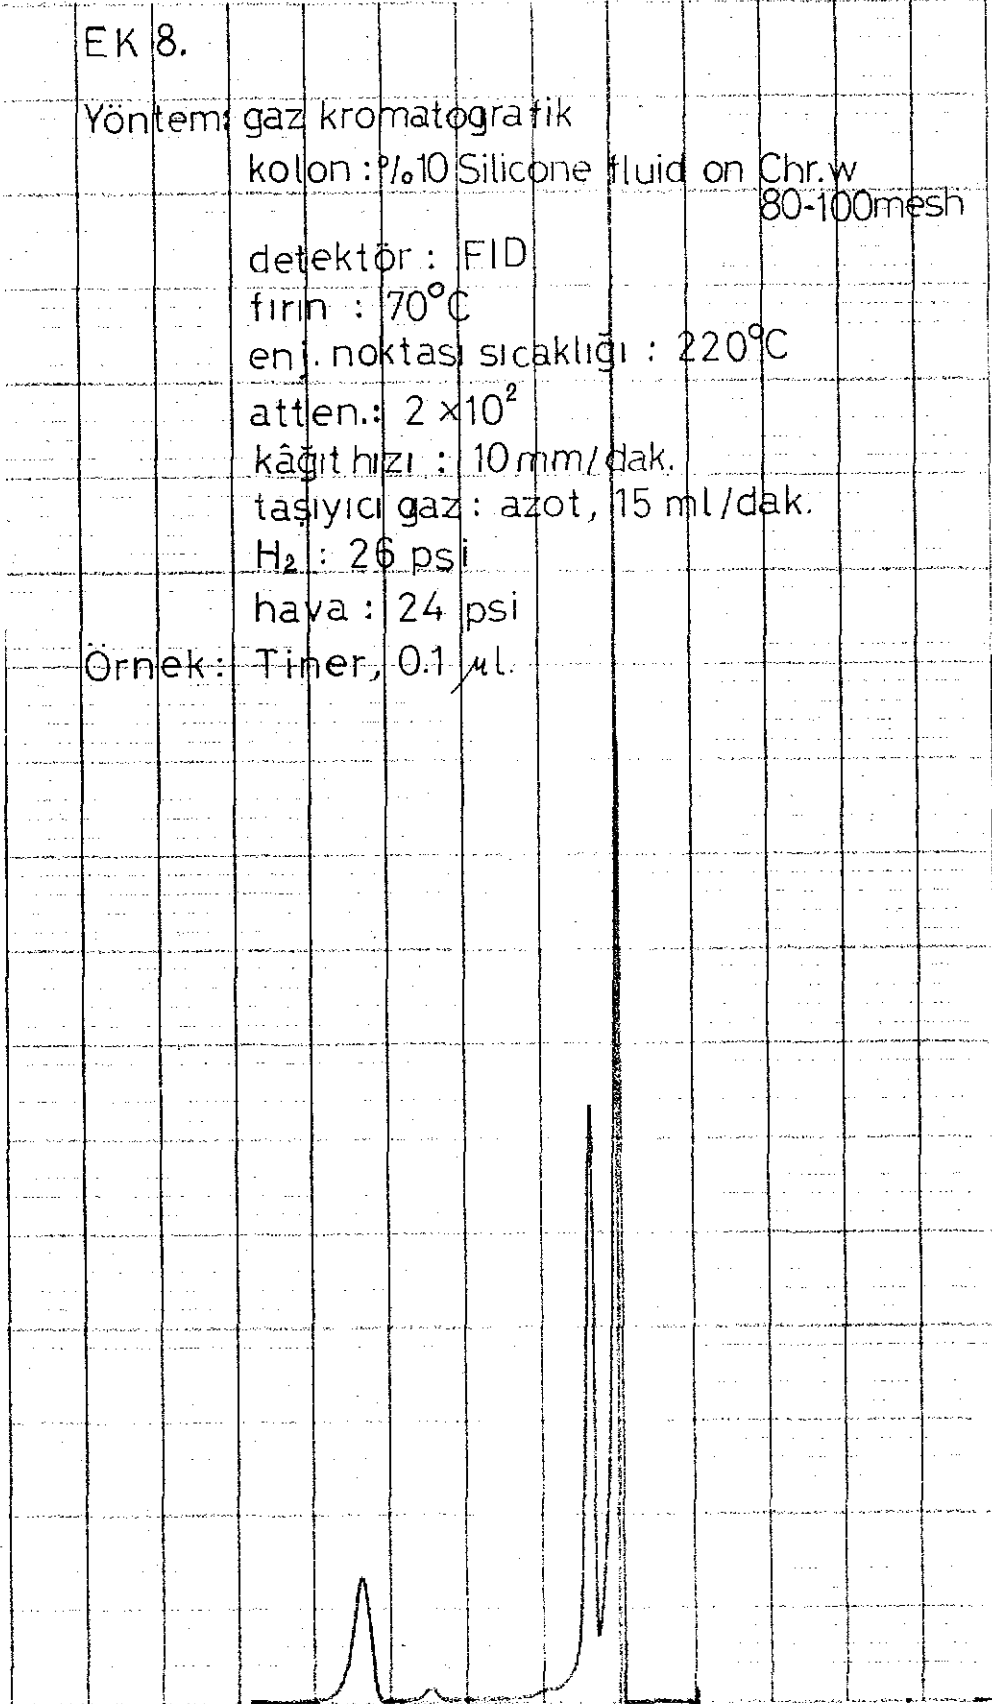 EK 8.
Yöntem: gaz kromatografik
kolon : %10 Silicone fluid on Chr.w
80-100mesh
detektör : FID
fırın : 70°C
enj. noktası sıcaklığı : 220°C
atten.: 2 x10²
kâğıt hızı : 10mm/dak.
taşıyıcı gaz : azot, 15 ml/dak.
H₂ : 26 psi
hava : 24 psi
Örnek: Tiner, 0.1 µl.